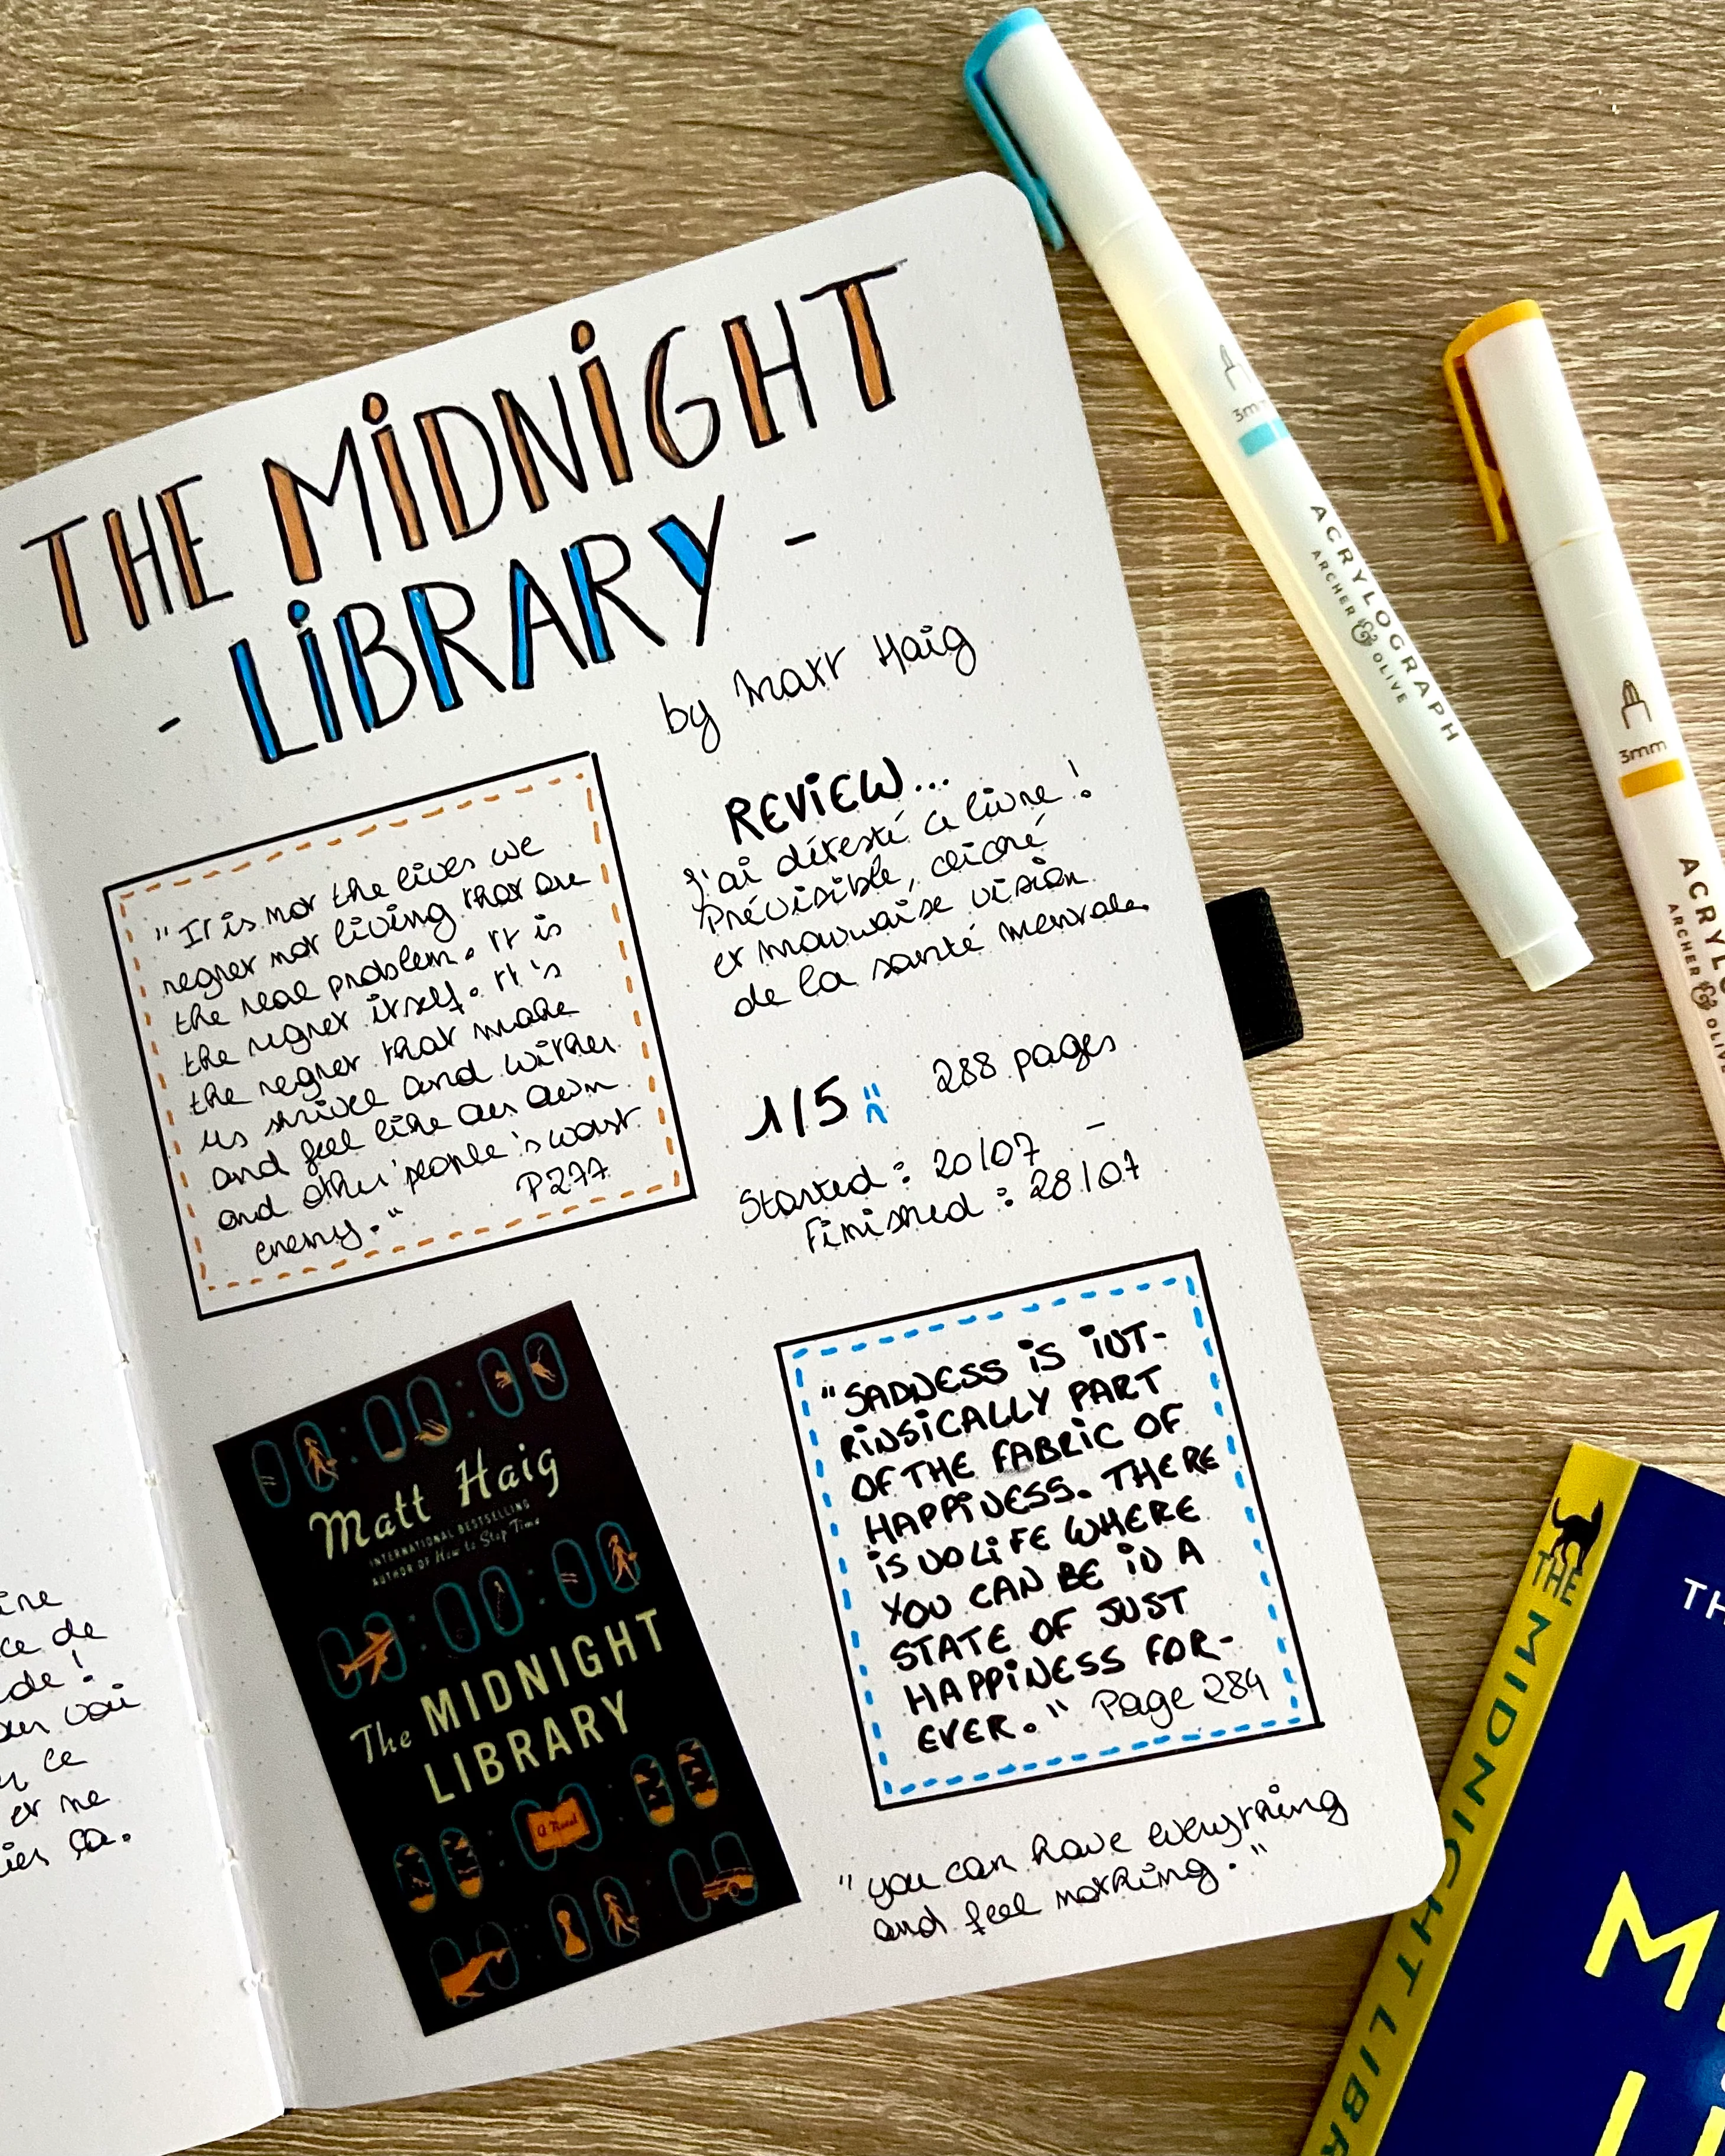 THE MIDNIGHT
- LIBRARY -
by Matt Haig
"It is not the lives we
regret not living that are
the real problem. It is
the regret itself. It's
the regret that make
us shrivel and wither
and feel like our own
and other people's worst
enemy." P277
REVIEW...
J'ai détesté ce livre !
Prévisible, cliché
et mauvaise vision
de la santé mentale
1/5 288 pages
Started : 20/07 -
Finished : 28/07
Matt Haig
INTERNATIONAL BESTSELLING
AUTHOR OF How to Stop Time
The MIDNIGHT
LIBRARY
a Novel
"SADNESS IS INT-
RINSICALLY PART
OF THE FABRIC OF
HAPPINESS. THERE
IS NO LIFE WHERE
YOU CAN BE IN A
STATE OF JUST
HAPPINESS FOR-
EVER." Page 284
"you can have everything
and feel nothing."
ce de
de !
voir
ce
et me
ça.
3mm
ACRYLOGRAPH
ARCHER & OLIVE
3mm
ACRYLO
ARCHER & OLIVE
THE MIDNIGHT LIBR
TH
M
L